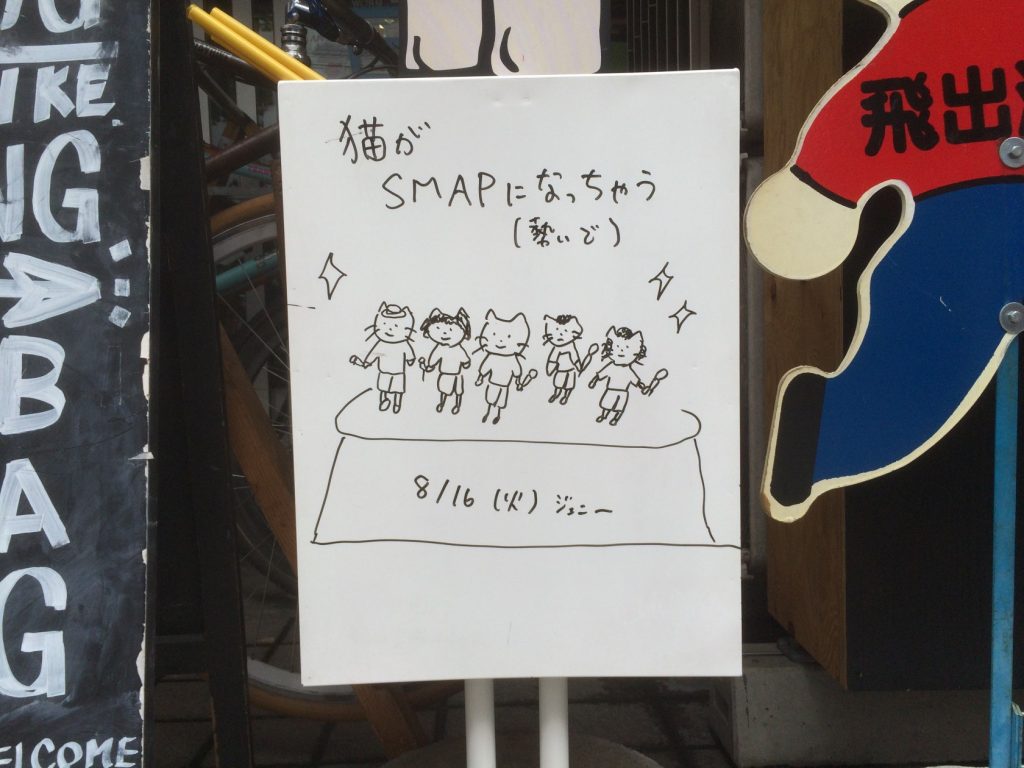 IKE
NG
BAG
WELCOME
猫が
SMAPになっちゃう
(勢いで)
8/16 (火) ジェニー
飛出